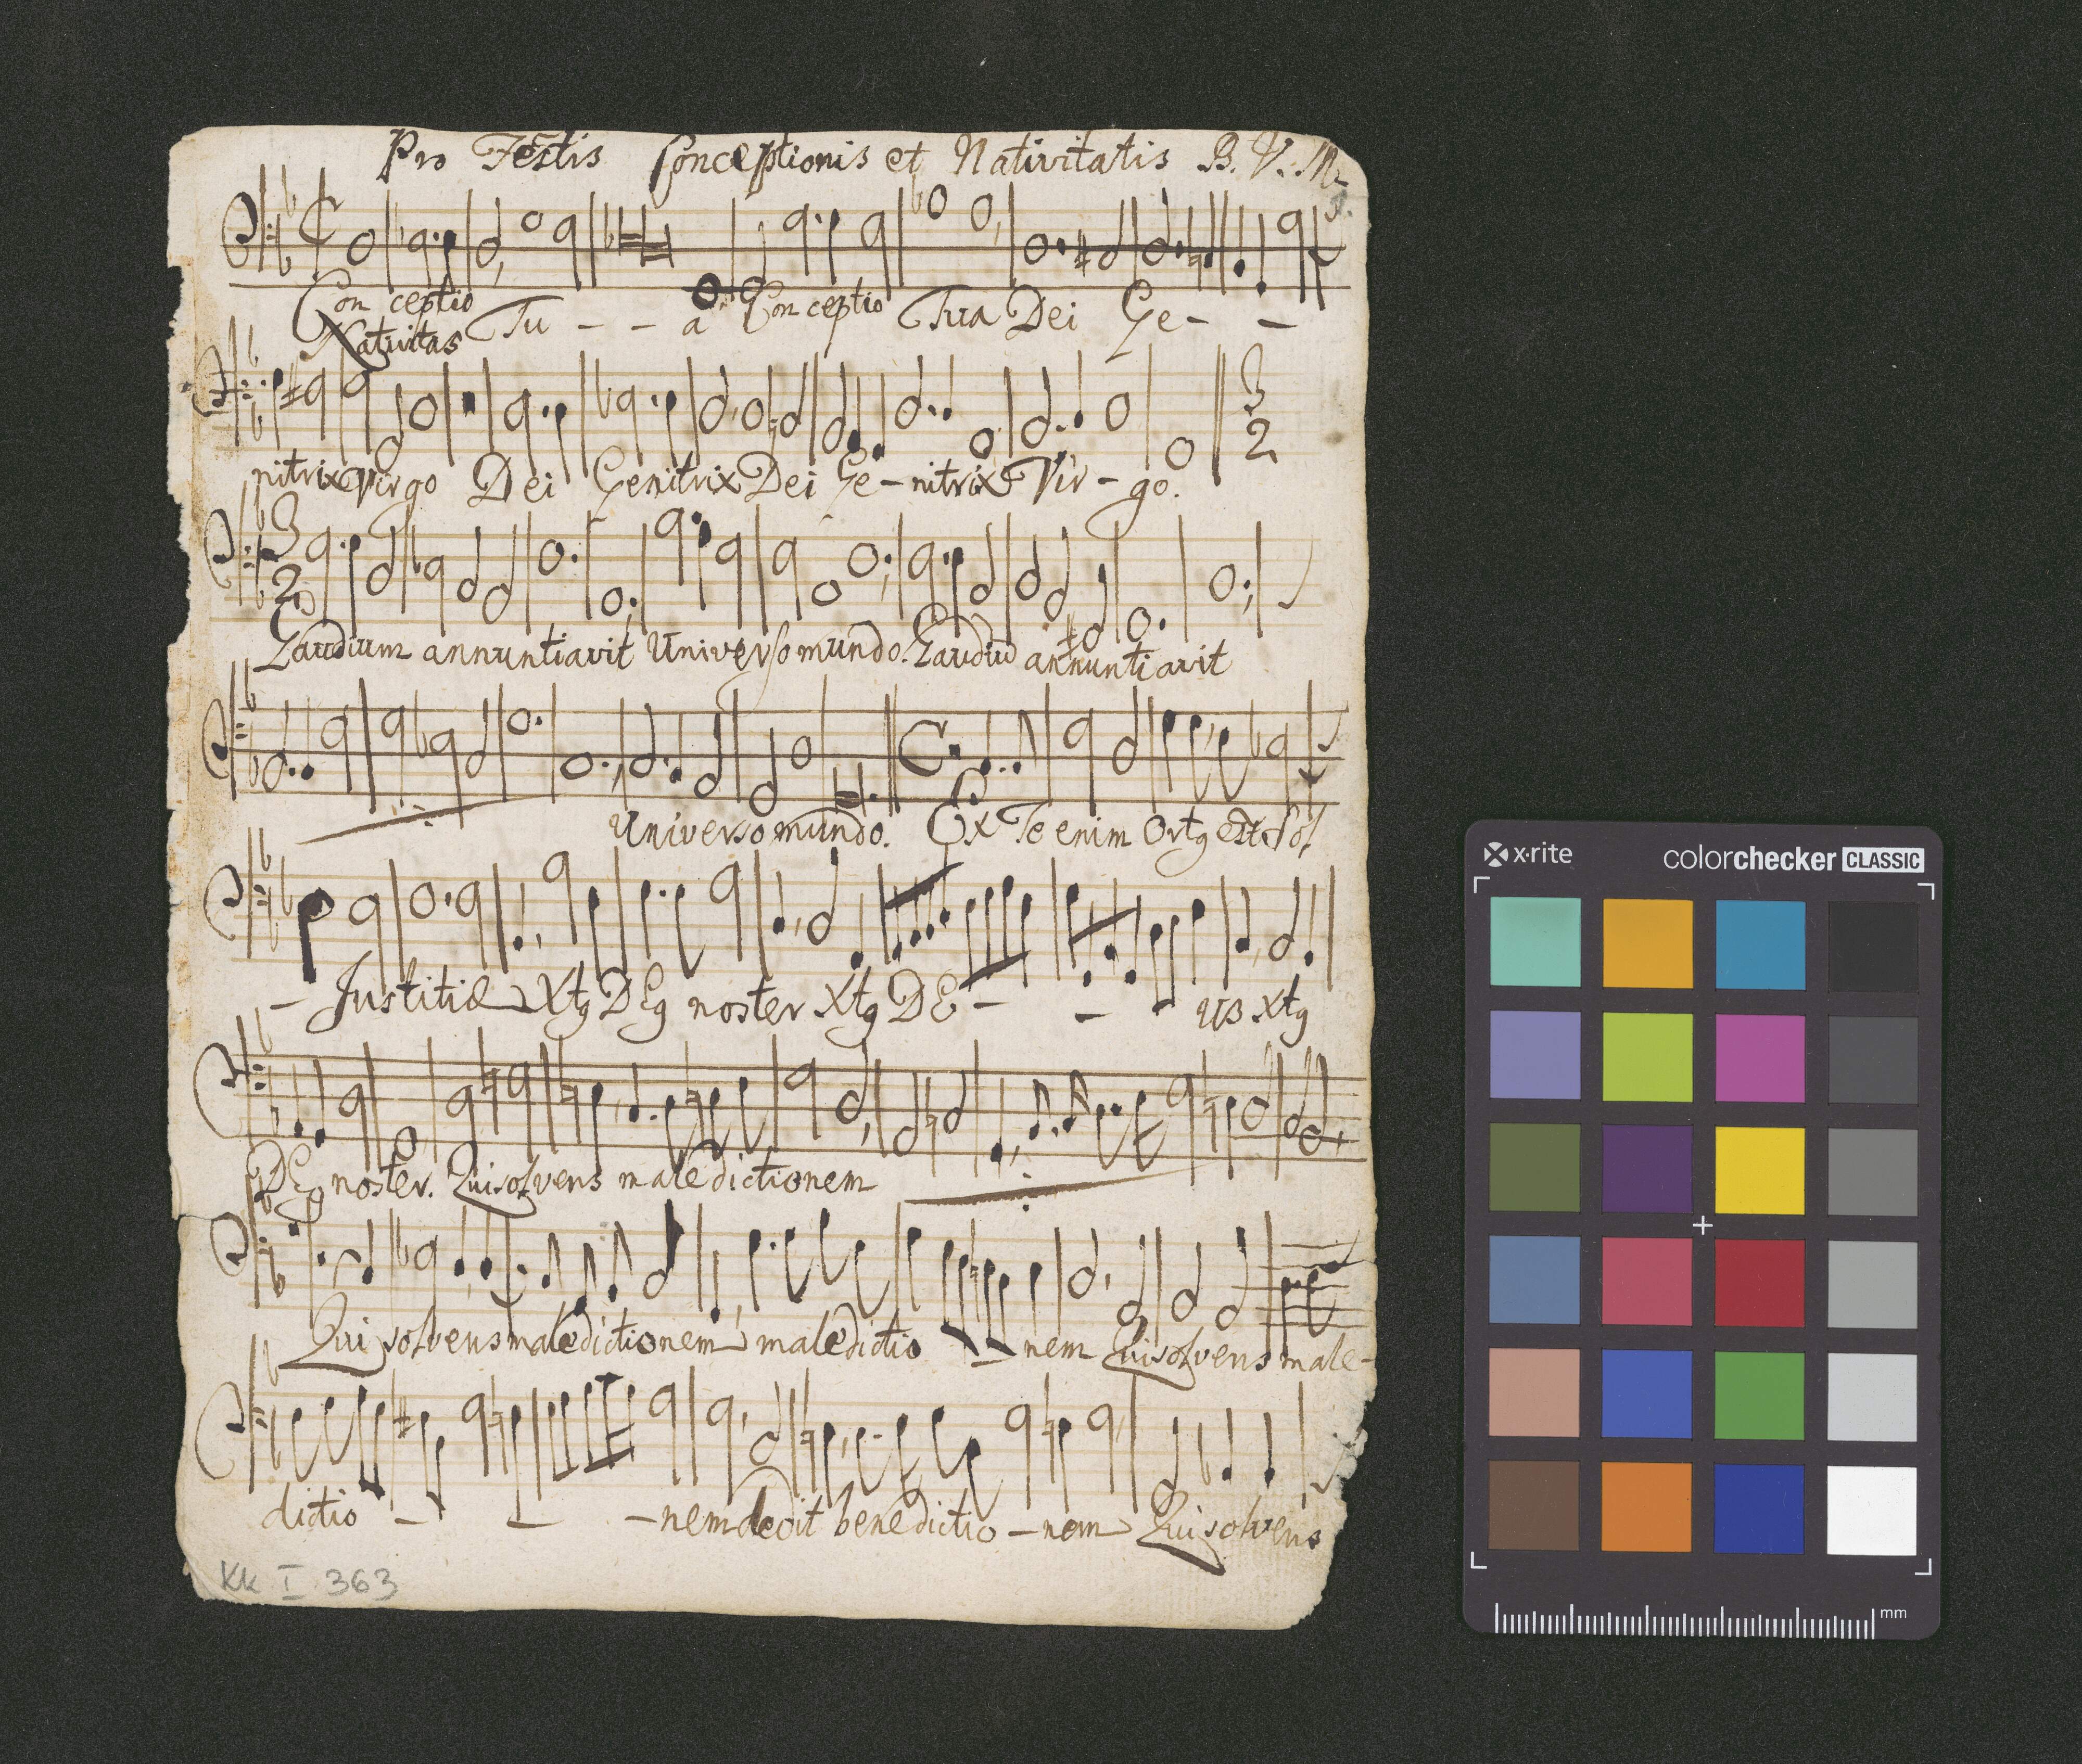 Pro Festis Conceptionis et Nativitatis B. V. M.
Conceptio Tu - - a Conceptio Tua Dei Ge- -
Nativitas
3
2
nitrix Virgo Dei Genitrix Dei Ge - nitrix Vir - go.
3
2
Gaudium annuntiavit Universo mundo. Gaudiū annuntiavit
Universo mundo. Ex Te enim Ortg est Sol
- Justitiæ Xtg DEg noster Xtg DE - - - us Xtg
DEg noster. Qui solvens maledictionem
Qui solvens maledictionem maledictio - - nem Qui solvens male-
ditio - - - nem dedit benedictio - nem Qui solvens
KK I 363
x·rite colorchecker CLASSIC
mm